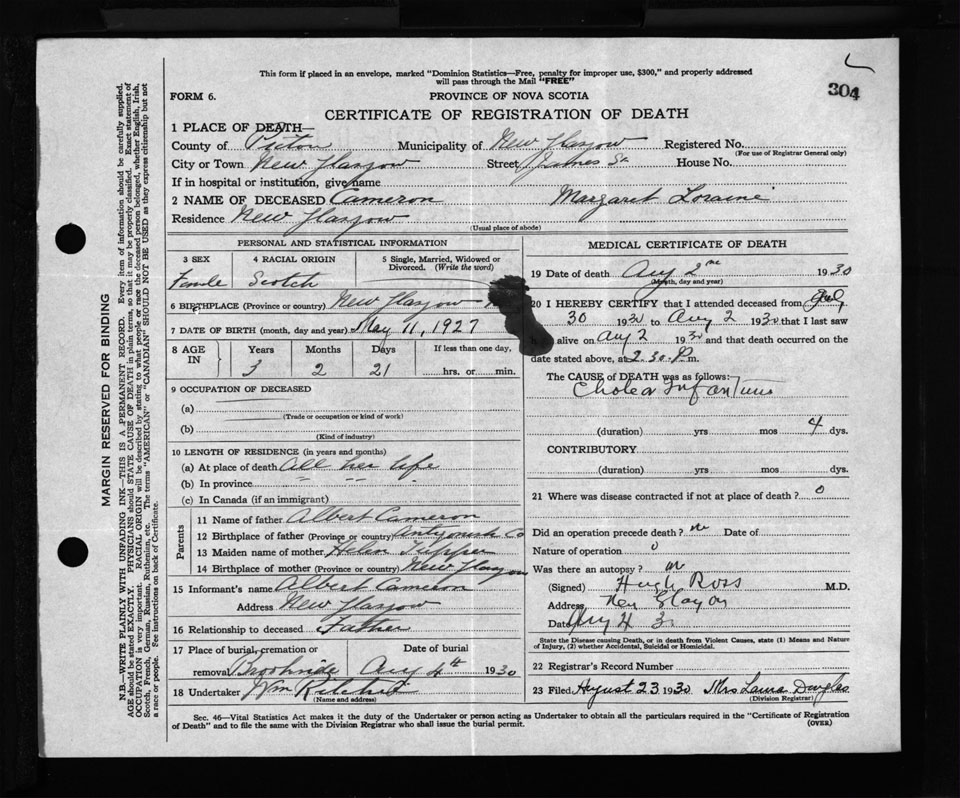 This form if placed in an envelope, marked "Dominion Statistics—Free, penalty for improper use, $300," and properly addressed
will pass through the Mail "FREE"
304
FORM 6.
PROVINCE OF NOVA SCOTIA
CERTIFICATE OF REGISTRATION OF DEATH
1 PLACE OF DEATH—
County of Pictou Municipality of New Glasgow Registered No.
(For use of Registrar General only)
City or Town New Glasgow Street James St House No.
If in hospital or institution, give name
2 NAME OF DECEASED Cameron Margaret Loraine
Residence New Glasgow
(Usual place of abode)
PERSONAL AND STATISTICAL INFORMATION
3 SEX 4 RACIAL ORIGIN 5 Single, Married, Widowed or
Divorced. (Write the word)
Female Scotch
6 BIRTHPLACE (Province or country) New Glasgow
7 DATE OF BIRTH (month, day and year) May 11, 1927
8 AGE IN Years Months Days If less than one day,
3 2 21 hrs. or min.
9 OCCUPATION OF DECEASED
(a)
(Trade or occupation or kind of work)
(b)
(Kind of industry)
10 LENGTH OF RESIDENCE (in years and months)
(a) At place of death All her life
(b) In province " " "
(c) In Canada (if an immigrant)
Parents
11 Name of father Albert Cameron
12 Birthplace of father (Province or country) Antigonish Co
13 Maiden name of mother Helen Tupper
14 Birthplace of mother (Province or country) New Glasgow
15 Informant's name Albert Cameron
Address New Glasgow
16 Relationship to deceased Father
17 Place of burial, cremation or Date of burial
removal Brookside Aug 4th 1930
18 Undertaker Wm
(Name and address)
MEDICAL CERTIFICATE OF DEATH
19 Date of death Aug 2nd 1930
(Month, day and year)
20 I HEREBY CERTIFY that I attended deceased from July
30 1930 to Aug 2 1930 that I last saw
h alive on Aug 2 1930 and that death occurred on the
date stated above, at 2.30 P.m.
The CAUSE of DEATH was as follows:
Cholera Infantum
(duration) yrs mos 4 dys.
CONTRIBUTORY
(duration) yrs mos dys.
21 Where was disease contracted if not at place of death? 0
Did an operation precede death? no Date of
Nature of operation 0
Was there an autopsy? no
(Signed) Hugh Ross M.D.
Address New Glasgow
Date Aug 4 30
State the Disease causing Death, or in death from Violent Causes, state (1) Means and Nature
of Injury, (2) whether Accidental, Suicidal or Homicidal.
22 Registrar's Record Number
23 Filed August 23 1930 Mrs Laura Douglas
(Division Registrar)
Sec. 46—Vital Statistics Act makes it the duty of the Undertaker or person acting as Undertaker to obtain all the particulars required in the "Certificate of Registration
of Death" and to file the same with the Division Registrar who shall issue the burial permit.
(OVER)
MARGIN RESERVED FOR BINDING
N.B.—WRITE PLAINLY WITH UNFADING INK—THIS IS A PERMANENT RECORD. Every item of information should be carefully supplied.
AGE should be stated EXACTLY. PHYSICIANS should STATE CAUSE OF DEATH in plain terms, so that it may be properly classified. Exact statement of
OCCUPATION is very important. RACIAL ORIGIN will be described by stating to what people or race the deceased person belonged, whether English, Irish,
Scotch, French, German, Russian, Ruthenian, etc. The terms "AMERICAN" or "CANADIAN" SHOULD NOT BE USED as they express citizenship but not
a race or people. See instructions on back of Certificate.